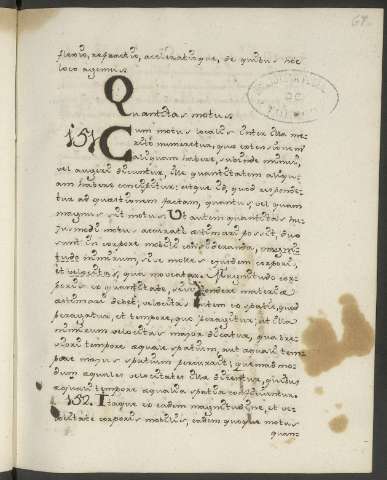 69.
flexio, refractio, acceleratioque, de quibus hoc
loco agemus.
Quantitas motus.
151 Cum motus localis inter illa me-
rito numeretur, quae extensionem
aliquam habere, subinde minui,
vel augeri dicuntur, ille quantitatem aliqu-
am habere concipitur: eaque id, quod responde-
tur ad quaestionem factam, quantus, vel quam
magnus sit motus. Ut autem quantitas hu-
jusmodi motus accurate aestimari possit, duo
sunt in corpore mobili consideranda, magni-
tudo nimirum, sive moles ejusdem corporis,
et velocitas, qua movetur. Magnitudo cor-
poris ex quantitate, seu pondere materiae
aestimari debet; velocitas item ex spatio, quod
peragratur, et tempore, quo peragitur; ut illa
nimirum velocitas major dicatur, qua bre-
viori tempore aequale spatium, aut aequali tem-
pore majus spatium percurrit; quemadmo-
dum aequales velocitates illae dicentur, quibus
aequali tempore aequalia spatia conficiuntur.
152. Itaque ex eadem magnitudine, et ve-
locitate corporis mobilis, eadem quoque motus
quan-